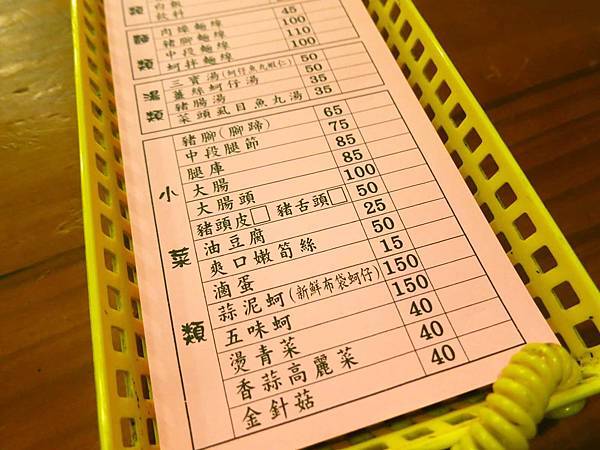 白飯
飲料
類
肉燥麵線 45
豬腳麵線 100
中段麵線 110
蚵拌麵線 100
湯類
三寶湯(蚵仔魚丸蝦仁) 50
薑絲蚵仔湯 50
豬腸湯 35
菜頭虱目魚丸湯 35
小菜類
豬腳(腳蹄) 65
中段腿節 75
腿庫 85
大腸 85
大腸頭 100
豬頭皮□ 豬舌頭□ 50
油豆腐 25
爽口嫩筍絲 50
滷蛋 15
蒜泥蚵(新鮮布袋蚵仔) 150
五味蚵 150
燙青菜 40
香蒜高麗菜 40
金針菇 40